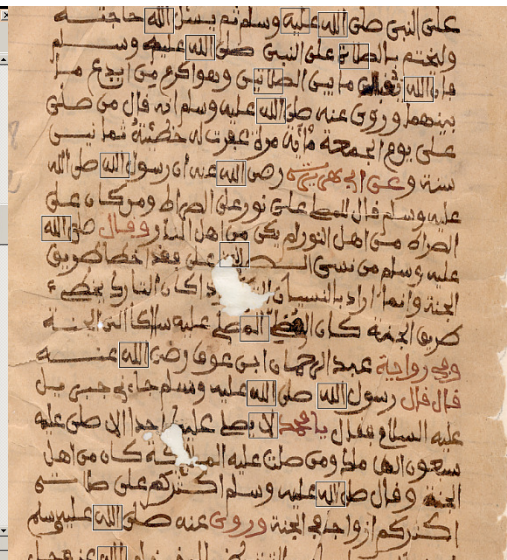 على النبي صلى الله عليه وسلم ثم يسئل الله حاجته
وليختم بالصلاة على النبي صلى الله عليه وسلم
فان الله تعالى ما بين الصلاتين وهو اكرم من ان يدع ما
بينهما وروى عنه صلى الله عليه وسلم انه قال من صلى
على يوم الجمعة مأية مرة غفرت له خطيئة ثمانين
سنة وعن ابي هريرة رضي الله عنه ان رسول الله صلى الله
عليه وسلم قال للمصلي على نور على الصراط ومن كان على
الصراط من اهل النور لم يكن من اهل النار وقال صلى الله
عليه وسلم من نسي الصلاة على فقد اخطا طريق
الجنة وانما اراد بالنسيان الترك اذا كان التارك يخطىء
طريق الجنة كان المصلي عليه سالكا الى الجنة
وفي رواية عبد الرحمان ابن عوف رضي الله عنه
قال قال رسول الله صلى الله عليه وسلم جاءني جبريل
عليه السلام فقال يا محمد لا يصلي عليك احد الا صلى عليه
سبعون الف ملك ومن صلت عليه الملائكة كان من اهل
الجنة وقال صلى الله عليه وسلم اكثركم على صلاة
اكثركم ازواجا في الجنة وروى عنه صلى الله عليه وسلم